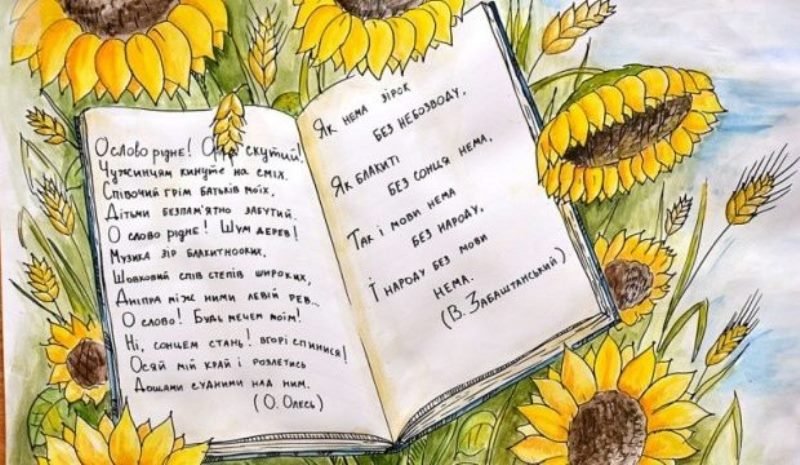 О слово рідне! скутий!
Чужинцям кинуте на сміх.
Співочий грім батьків моїх,
Дітьми безпам'ятно забутий.
О слово рідне! Шум дерев!
Музика зір блакитнооких,
Шовковий спів степів широких,
Дніпра між ними левій рев...
О слово! Будь мечем моїм!
Ні, сонцем стань! вгорі спинися!
Осяй мій край і розлетись
Дощами судними над ним.
(О. Олесь)
Як нема зірок
без небозводу,
Як блакиті
без сонця нема,
Так і мови нема
без народу,
Ї народу без мови
нема.
(В. Забаштанський)